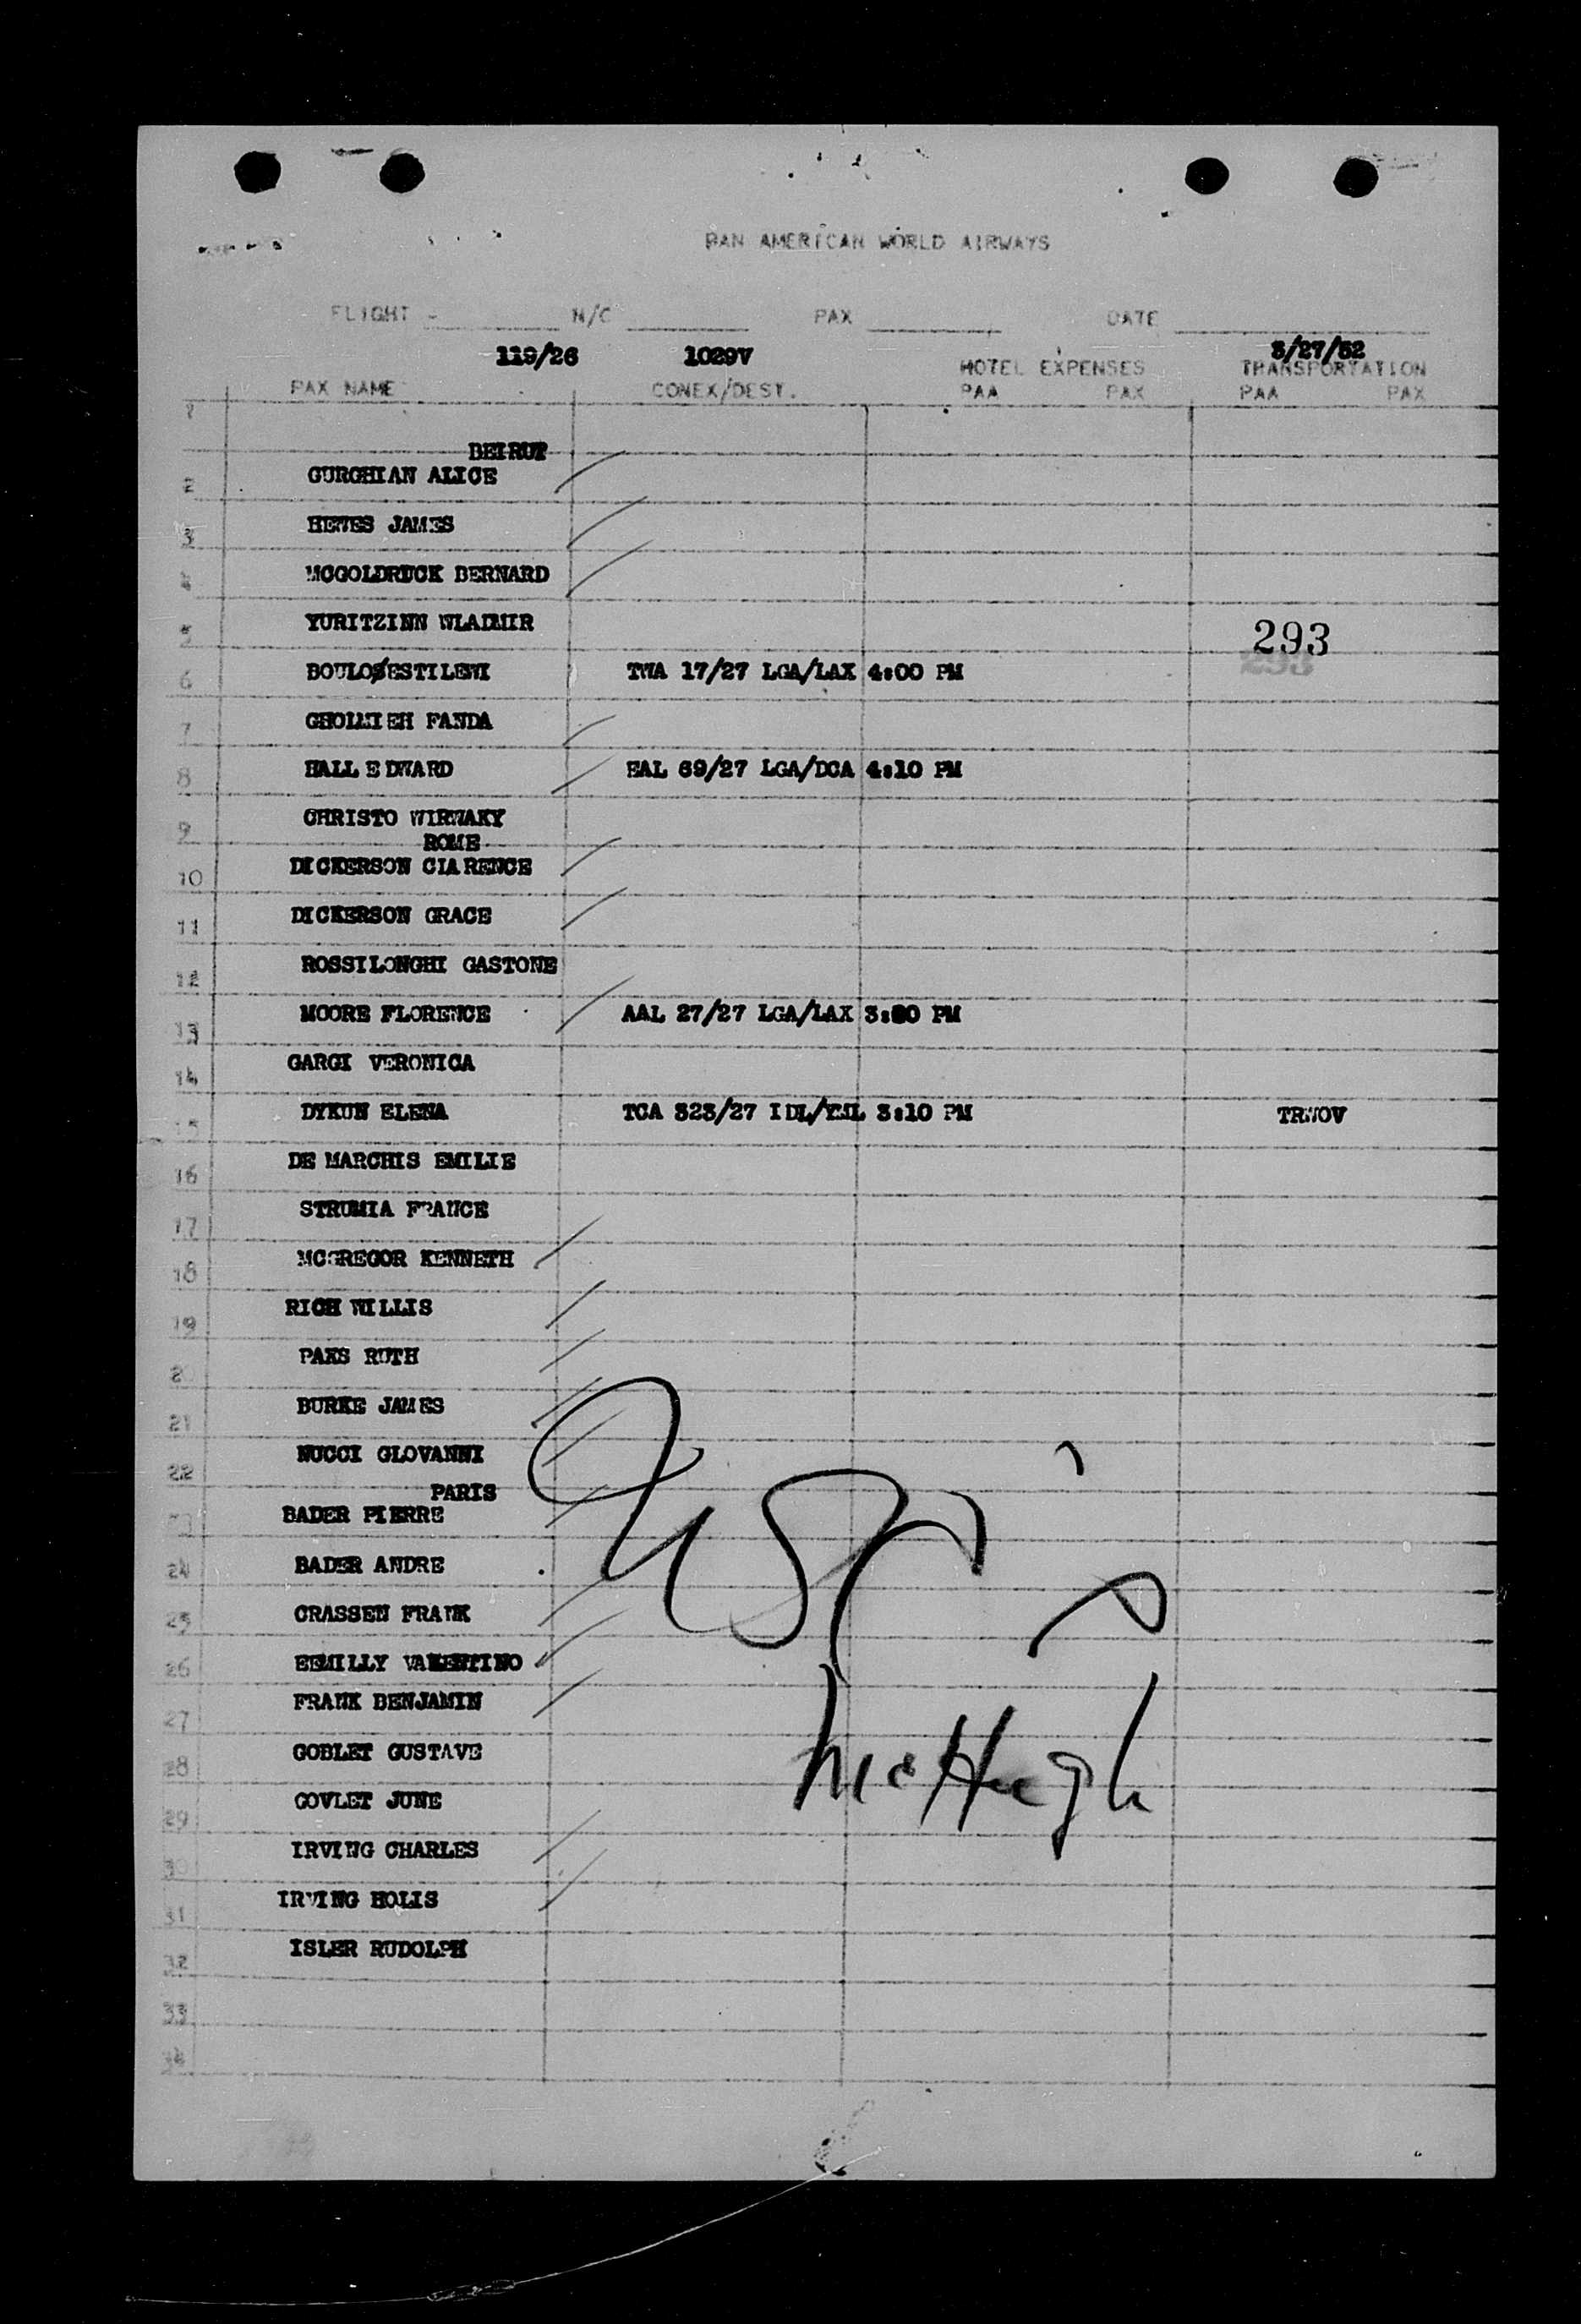 PAN AMERICAN WORLD AIRWAYS
FLIGHT - N/C PAX DATE
119/26 1029V 3/27/52
HOTEL EXPENSES TRANSPORTATION
PAX NAME CONEX/DEST. PAA PAX PAA PAX
1
BEIRUT
2 GURGHIAN ALICE
3 HEWES JAMES
4 MCGOLDRUCK BERNARD
5 YURITZINN WLADIMIR 293
6 BOULOS ESTILENI TWA 17/27 LGA/LAX 4:00 PM
7 GHOLMIEH FANDA
8 HALL EDWARD EAL 69/27 LGA/DCA 4:10 PM
9 CHRISTO WIRWAKY
ROME
10 DICKERSON CLARENCE
11 DICKERSON GRACE
12 ROSSILONGHI GASTONE
13 MOORE FLORENCE AAL 27/27 LGA/LAX PM
14 GARGI VERONICA
15 DYKUN ELENA TCA 323/27 IDL/YUL 3:10 PM TRWOV
16 DE MARCHIS EMILIE
17 STRUMIA FRANCE
18 MCGREGOR KENNETH
19 RICH WILLIS
20 PAKS RUTH
21 BURKE JAMES
22 NUCCI GLOVANNI
PARIS
23 BADER PIERRE
24 BADER ANDRE
25 CRASSEN FRANK
26 EEMILLY VALENTINO
27 FRANK BENJAMIN
28 GOBLET GUSTAVE
29 GOVLET JUNE
30 IRVING CHARLES
31 IRVING HOLIS
32 ISLER RUDOLPH
33
34
McHugh